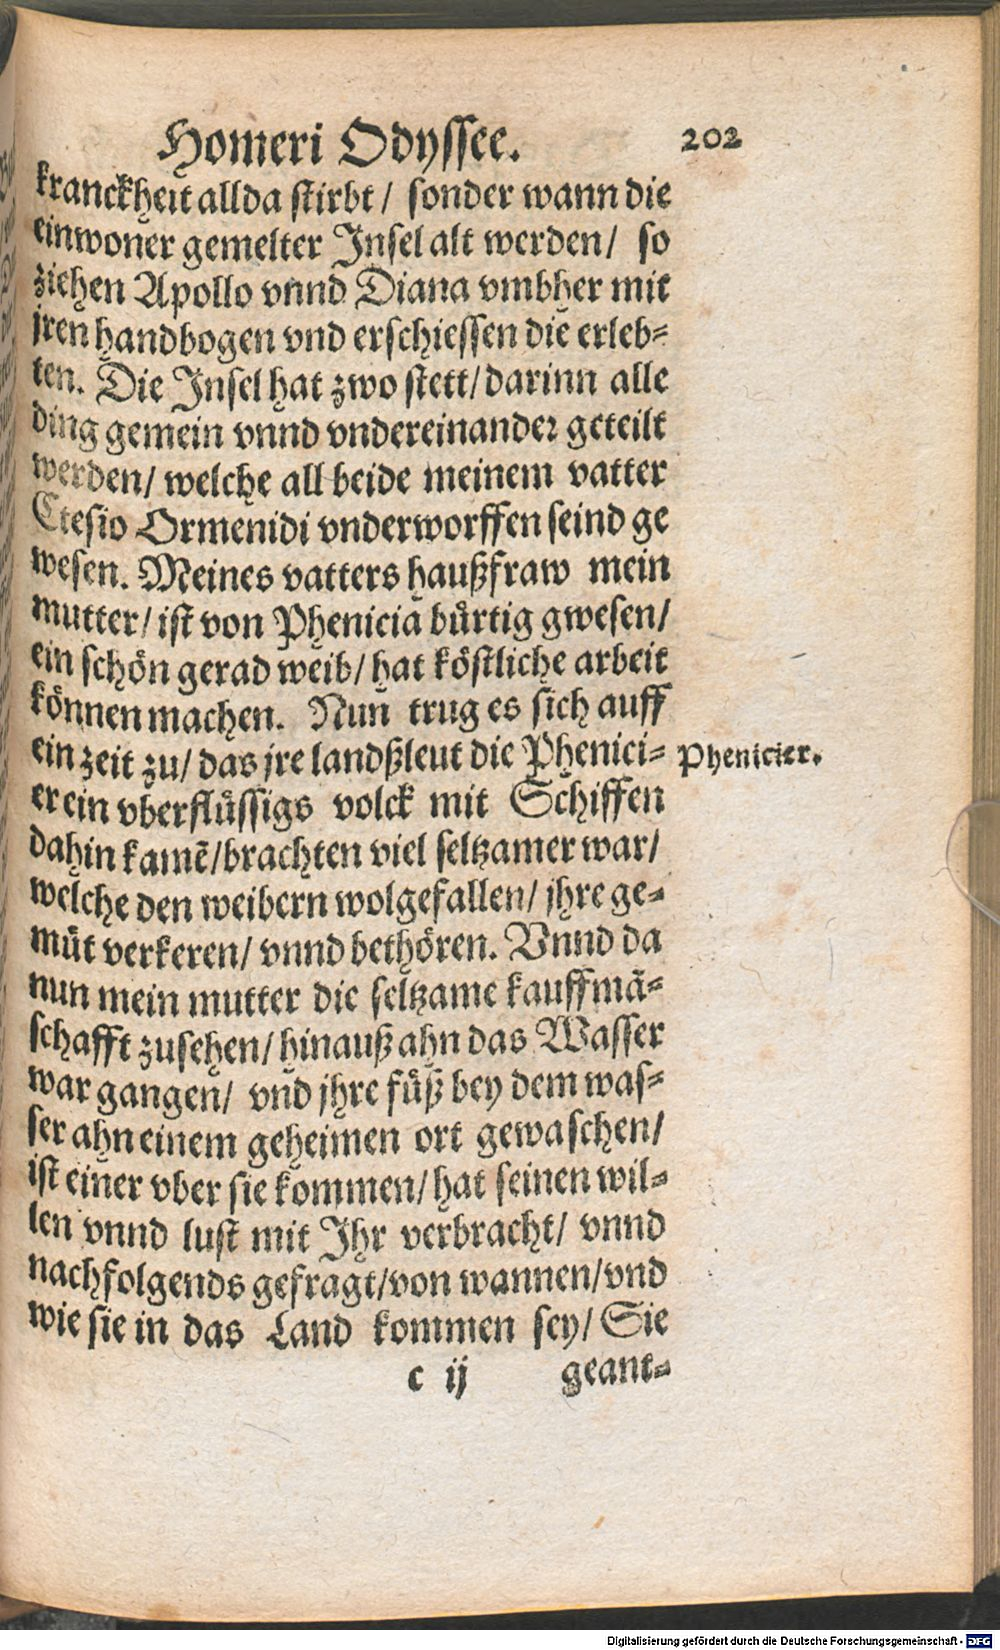 Homeri Odyssee. 202
kranckheit allda stirbt / sonder wann die
einwoner gemelter Insel alt werden / so
ziehen Apollo vnnd Diana vmbher mit
jren handbogen vnd erschiessen die erleb⸗
ten. Die Insel hat zwo stett / darinn alle
ding gemein vnnd vndereinander geteilt
werden / welche all beide meinem vatter
Ctesio Ormenidi vnderworffen seind ge
wesen. Meines vatters haußfraw mein
mutter / ist von Phenicia bůrtig gwesen /
ein schön gerad weib / hat köstliche arbeit
können machen. Nun trug es sich auff
ein zeit zu / das jre landßleut die Phenici⸗
Phenicier.
er ein vberflüssigs volck mit Schiffen
dahin kamẽ / brachten viel seltzamer war /
welche den weibern wolgefallen / jhre ge⸗
müt verkeren / vnnd bethören. Vnnd da
nun mein mutter die seltzame kauffmā⸗
schafft zusehen / hinauß ahn das Wasser
war gangen / vnd jhre füß bey dem was⸗
ser ahn einem geheimen ort gewaschen /
ist einer vber sie kommen / hat seinen wil⸗
len vnnd lust mit Ihr verbracht / vnnd
nachfolgends gefragt / von wannen / vnd
wie sie in das Land kommen sey / Sie
c ij geant⸗
Digitalisierung gefördert durch die Deutsche Forschungsgemeinschaft - DFG